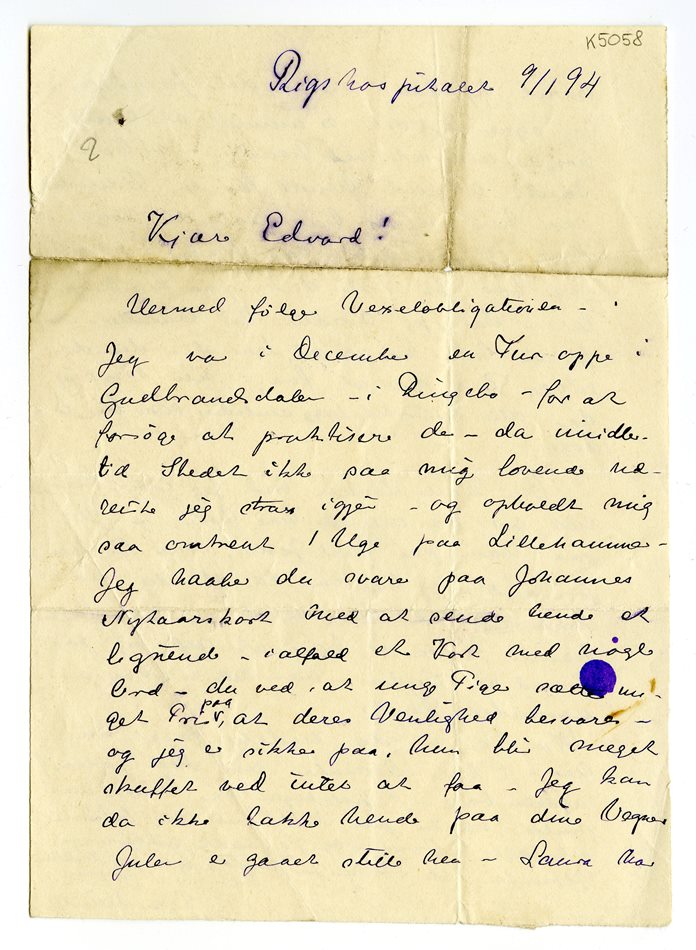 K5058
Rigshospitalet 9/1 94
2
Kjære Edvard!
Hermed følger Vexelobligationen –
Jeg var i December en Tur oppe i
Gudbrandsdalen – i Ringebo – for at
forsøge at praktisere der – da imidler-
tid Stedet ikke saa mig lovende ud –
reiste jeg strax igjen – og opholdt mig
saa omtrent 1 Uge paa Lillehammer –
Jeg haaber du svarer paa Johannes
Nytaarskort med at sende hende et
lignende – ialfald et Kort med nogle
Ord – du ved, at unge Piger sætter me-
get Pris paa, at deres Venlighed besvares –
og jeg er sikker paa, hun blir meget
skuffet ved intet at faa – Jeg kan
da ikke takke hende paa dine Vegne
Julen er gaaet stille hen – Laura har